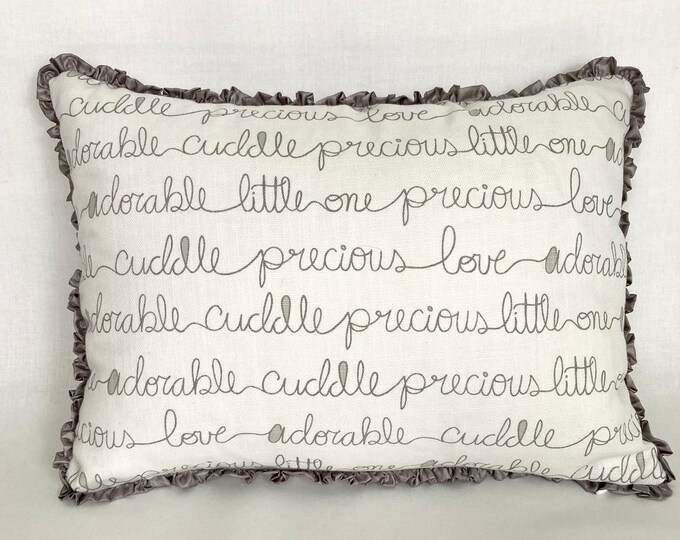 cuddle precious love adorable cu
adorable cuddle precious little one a
adorable little one precious love
le cuddle precious love adorable
dorable cuddle precious little one
e adorable cuddle precious little o
cious love adorable cuddle prec
able precious little one adorable cuddle